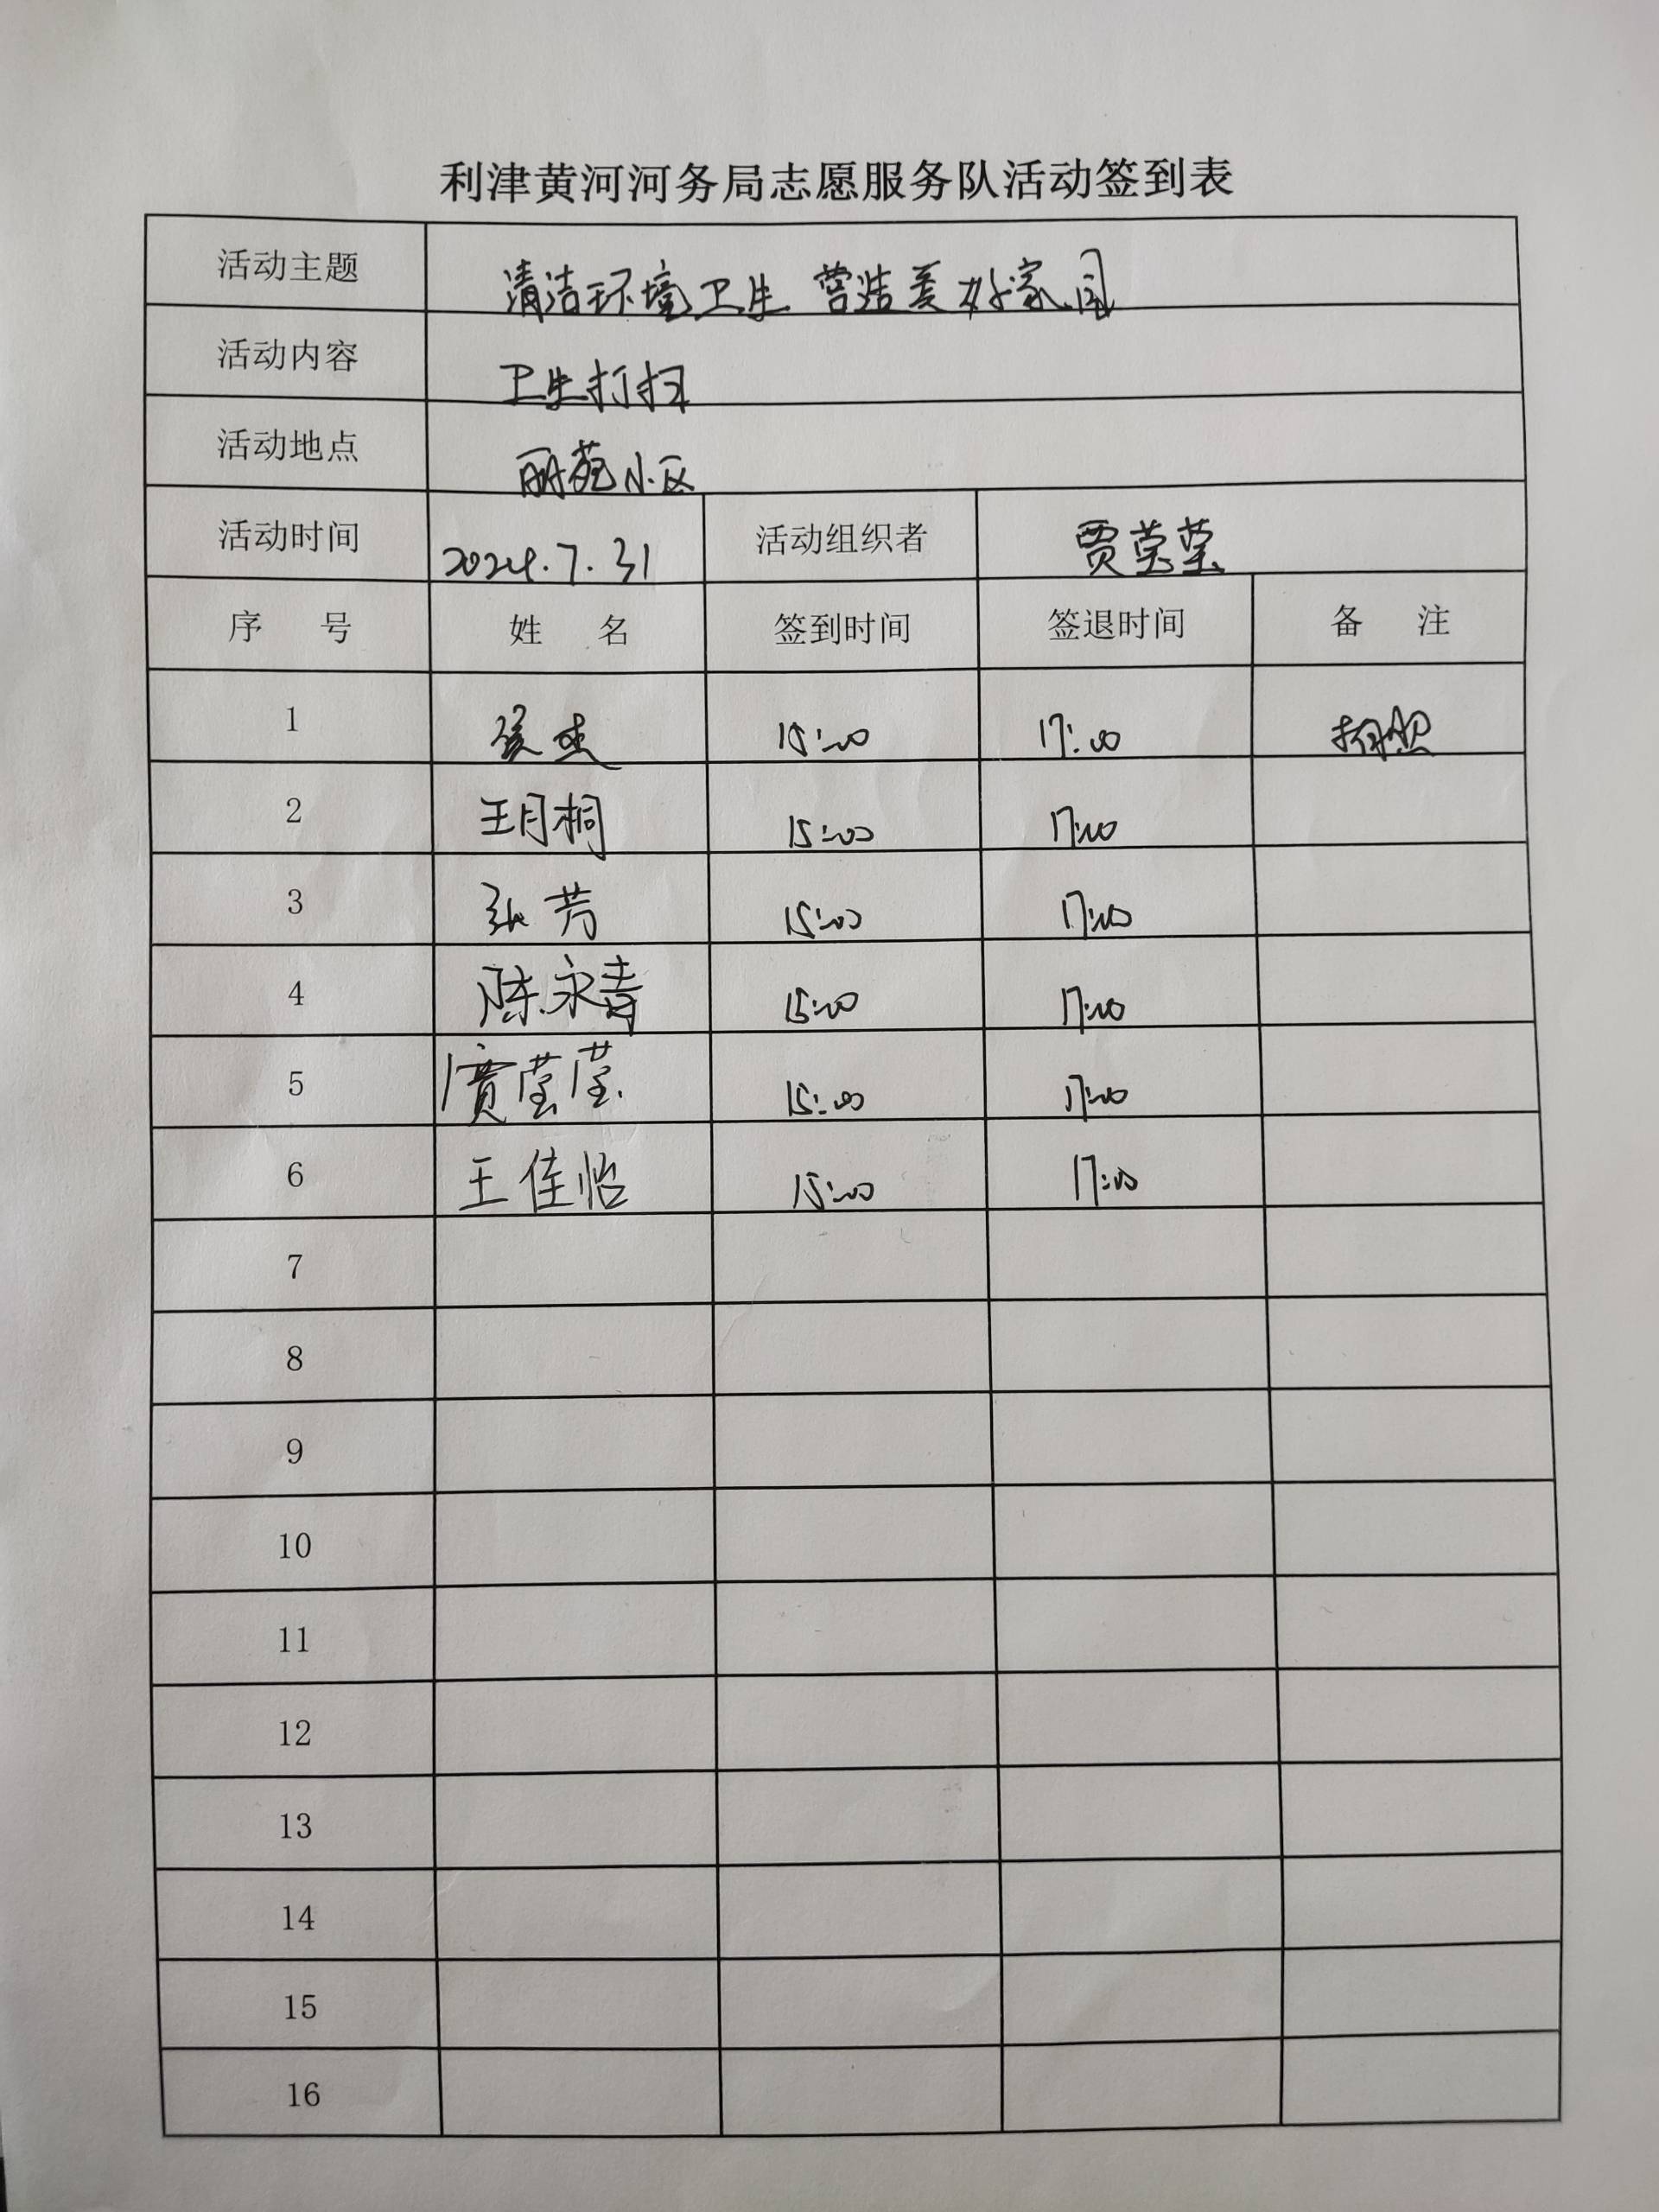 利津黄河河务局志愿服务队活动签到表
活动主题 清洁环境卫生 营造美好家园
活动内容 卫生打扫
活动地点 丽苑小区
活动时间 2024.7.31 活动组织者 贾莹莹
序 号 姓 名 签到时间 签退时间 备 注
1 15:00 17:00 拍照
2 王月桐 15:00 17:00
3 张芳 15:00 17:00
4 陈永青 15:00 17:00
5 贾莹莹 15:00 17:00
6 王佳怡 15:00 17:00
7
8
9
10
11
12
13
14
15
16